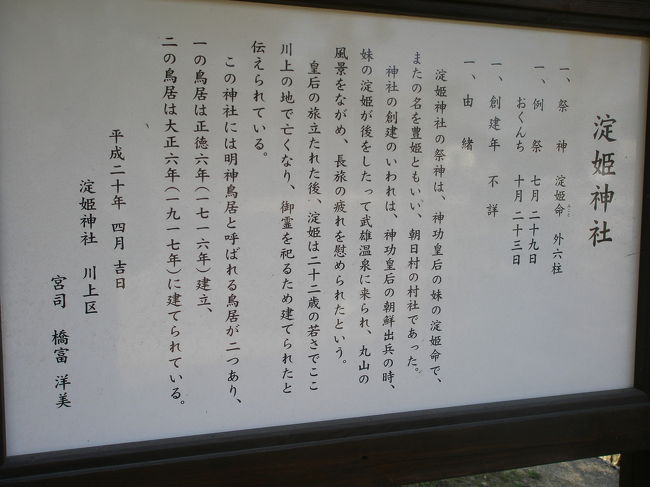 淀姫神社
一、祭　神　淀姫命　外六柱
一、例　祭　七月二十九日
おくんち　十月二十三日
一、創建年　不　詳
一、由　緒
淀姫神社の祭神は、神功皇后の妹の淀姫命で、
またの名を豊姫ともいい、朝日村の村社であった。
神社の創建のいわれは、神功皇后の朝鮮出兵の時、
妹の淀姫が後をしたって武雄温泉に来られ、丸山の
風景をながめ、長旅の疲れを慰められたという。
皇后の旅立たれた後、淀姫は二十二歳の若さでここ
川上の地で亡くなり、御霊を祀るため建てられたと
伝えられている。
この神社には明神鳥居と呼ばれる鳥居が二つあり、
一の鳥居は正徳六年（一七一六年）建立、
二の鳥居は大正六年（一九一七年）に建てられている。
平成二十年　四月　吉日
淀姫神社　川上区
宮司　橋富　洋美